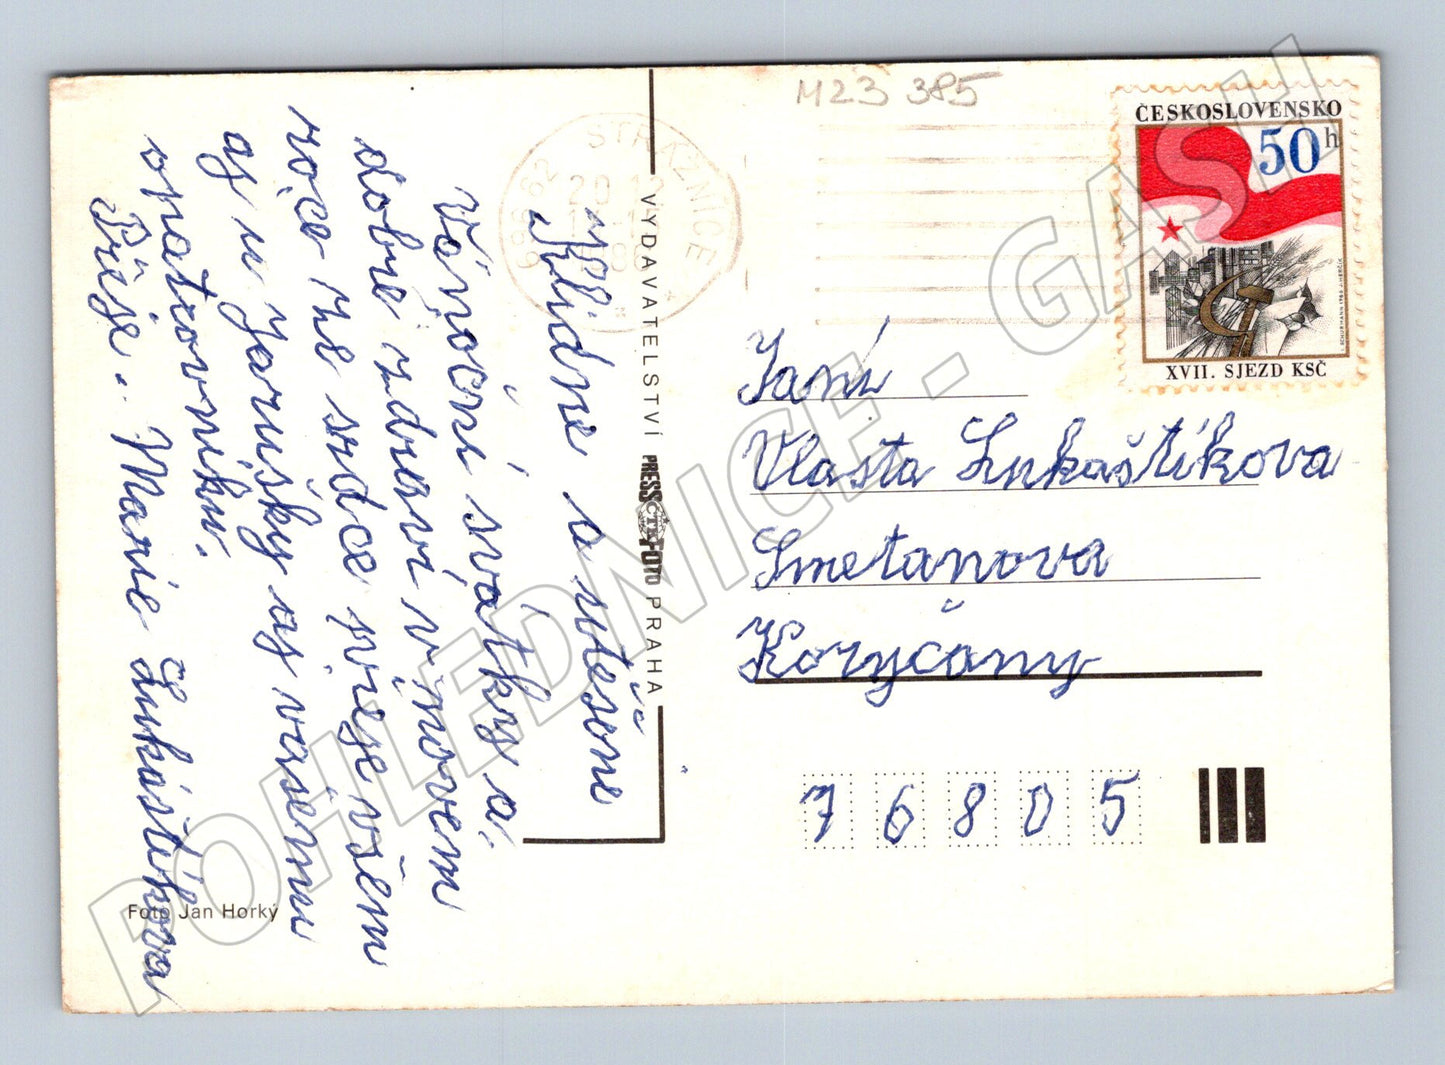 M23 385
ČESKOSLOVENSKO
50 h
XVII. SJEZD KSČ
STRÁŽNICE
VYDAVATELSTVÍ PRESSFOTO PRAHA
Klidné a vesele
Vánoční svátky a
dobre zdraví v novém
roce ze srdce přeje všem
aj u Jarušky aj vašemu
opatrovníku.
Přeje. Marie Lukáštíkova
Foto Jan Horký
Paní
Vlasta Lukaštíkova
Smetanova
Koryčany
76805
POHLEDNICE - GASH